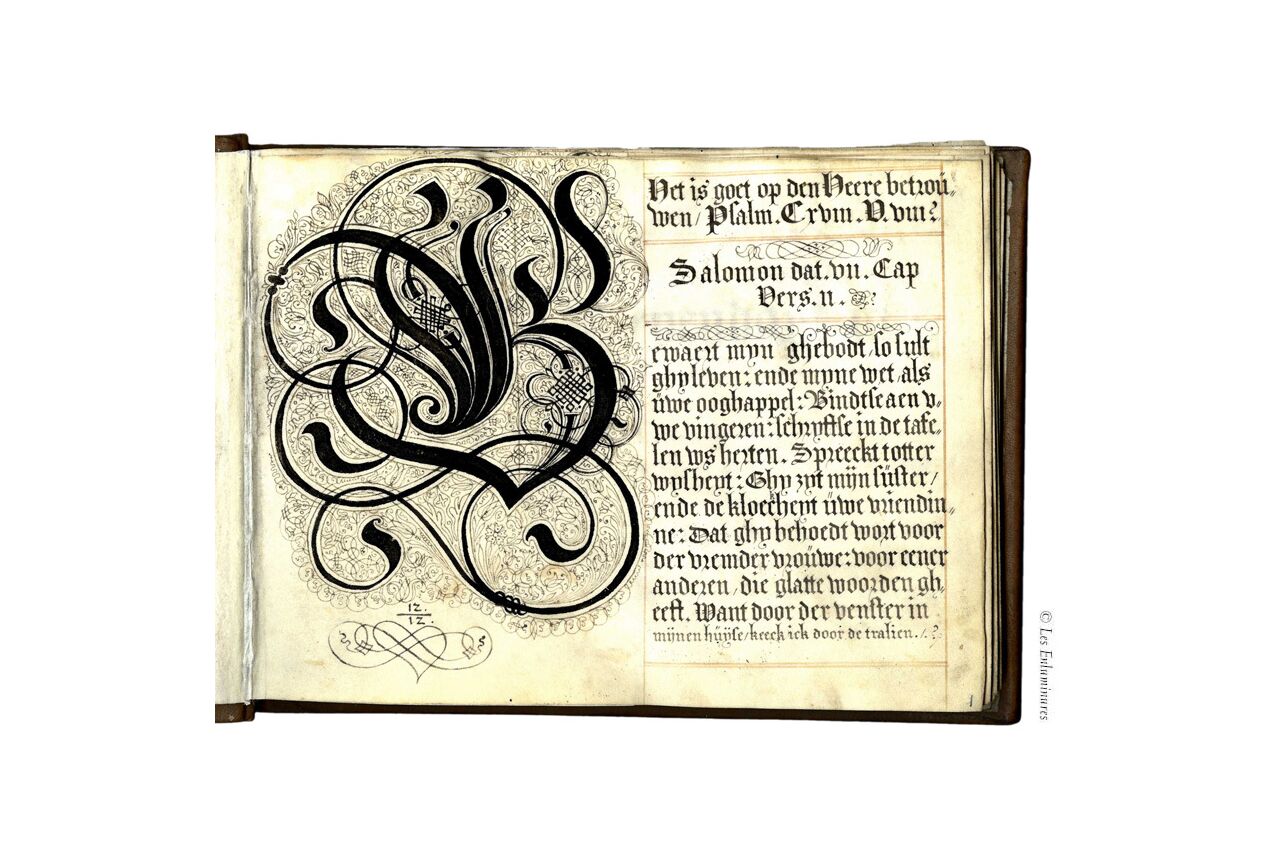 Het is goet op den Heere betroü„
wen / Psalm. Cxviii. V. viii.
Salomon dat. vii. Cap
Vers. ii.
B
ewaert myn ghebodt / so sult
ghy leven: ende myne wet / als
üwe ooghappel: Bindtse aen v„
we vingeren: schryftse in de tafe„
len uws herten. Spreeckt totter
wysheyt: Ghy zyt mijn süster /
ende de kloeckheyt üwe vriendin„
ne: Dat ghy behoedt wort voor
der vremder vroüwe: voor eener
anderen / die glatte woorden gh„
eeft. Want door der venster in
mijnen hüÿse / keeck ick door de tralien. /.
12.
12.
1
© Les Enluminures